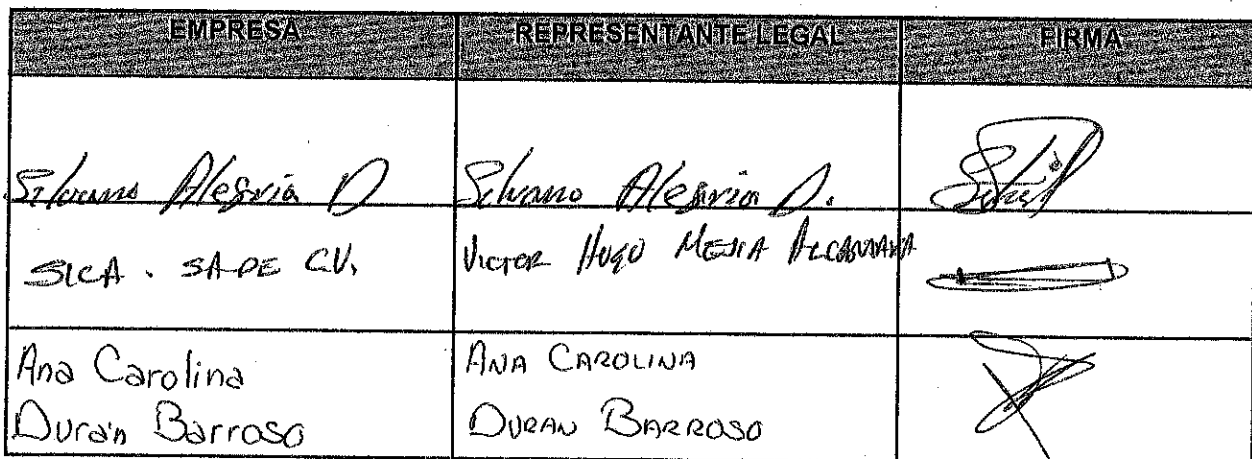 EMPRESA REPRESENTANTE LEGAL FIRMA
Silvano Alegria D Silvano Alegria D.
SICA . SA DE CV. VICTOR HUGO MEJIA ALCANTARA
Ana Carolina ANA CAROLINA
Durán Barroso DURAN BARROSO